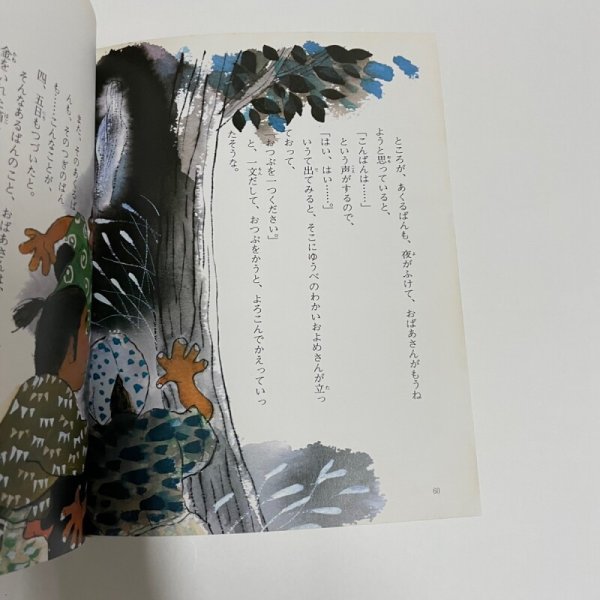 ところが、あくるばんも、夜がふけて、おばあさんがもうね
ようと思っていると、
「こんばんは……」
という声がするので、
「はい、はい……」。
いうて出てみると、そこにゆうべのわかいおよめさんが立っ
ておって、
「おつぶを一つください」
と、一文だして、おつぶをかうと、よろこんでかえっていっ
たそうな。
60
また、そのあくる
ばんも、そのつぎのばん
も……こんなことが、
四、五日もつづいたと。
そんなあるばんのこと、おばあさんは、